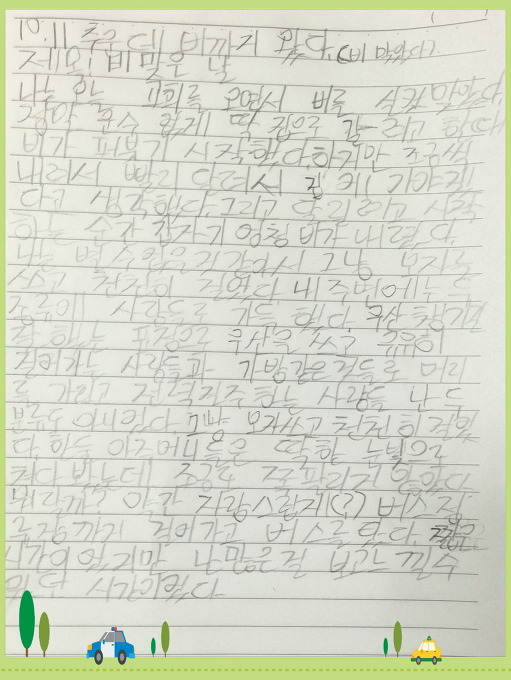 10.11 추운데 비까지 왔다. (비 맞았다)
제모: 비 맞은 날
나는 오늘 교회를 오면서 비를 식컷 맞았다.
정말 운수 없게 딱 집으로 갈-려고 하때
비가 퍼붓기 시작했다. 하지만 조금씩
내려서 빨리 달려서 집에 가야지
다고 생각했다. 그리고 달리려고 시작
하는 순간 갑자기 엉청 비가 내렸다.
나는 별 수 없는 것 같아서 그냥 모자를
쓰고 천천히 걸었다. 내 주변에는 두
종류에 사람들로 가득 했다. 우산 챙기면
걸 하는 표정으로 우산을 쓰고 유유히
걸어가는 사람들과 가방같은 것들로 머리
를 가리고 전력질주 하는 사람들 난 두
분류도 아니였다. 그냥 모자쓰고 천천히 걸었
다. 한두 아주머니들은 딱한 눈빛으로
쳐다 봤는데 조금도 쪽팔리지 않았다.
뭐랄까? 약간 자랑스럽게(?) 버스 정
류장까지 걸어가고 버스를 탔다. 짧은
시간이었지만 나 많은 걸 보고 느낄 수
있던 시간이었다.